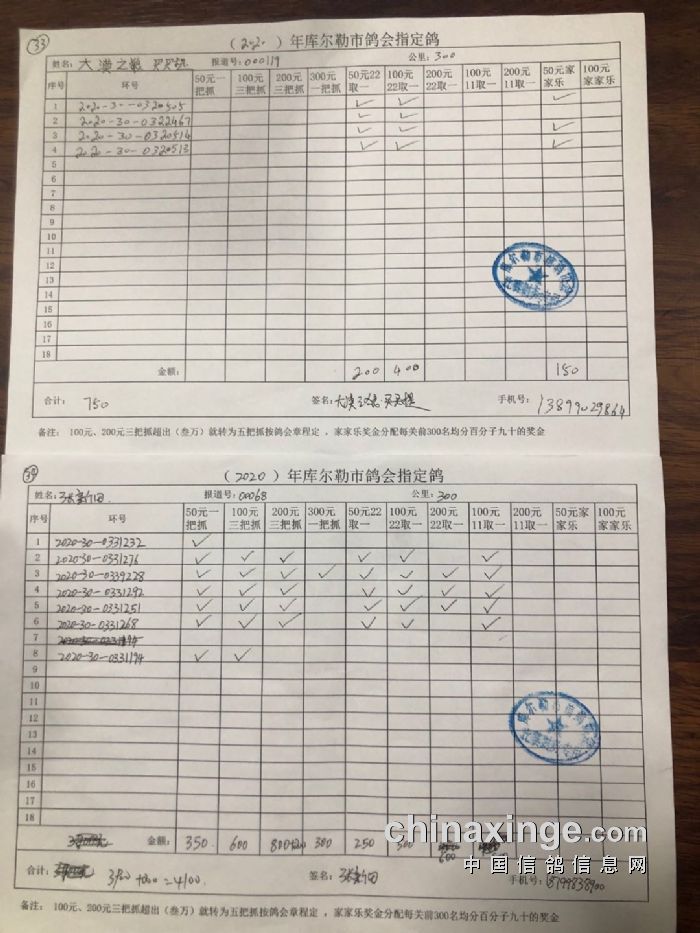 33
（2020）年库尔勒市鸽会指定鸽
姓名：大漠之 报道号：000119 公里：300
序号 环号 50元一把抓 100元三把抓 200元三把抓 300元一把抓 50元22取一 100元22取一 200元22取一 100元11取一 200元11取一 50元家家乐 100元家家乐
1 2020-30-0320505 ✓ ✓ ✓
2 2020-30-0322467 ✓ ✓
3 2020-30-0320514 ✓ ✓ ✓
4 2020-30-0320513 ✓ ✓ ✓
5
6
7
8
9
10
11
12
13
14
15
16
17
18
金额： 200 400 150
合计： 750 签名： 手机号：13899029864
备注： 100元、200元三把抓超出（叁万）就转为五把抓按鸽会章程定，家家乐奖金分配每关前300名均分百分子九十的奖金
34
（2020）年库尔勒市鸽会指定鸽
姓名：张新田 报道号：00068 公里：300
序号 环号 50元一把抓 100元三把抓 200元三把抓 300元一把抓 50元22取一 100元22取一 200元22取一 100元11取一 200元11取一 50元家家乐 100元家家乐
1 2020-30-0331232 ✓
2 2020-30-0331276 ✓ ✓ ✓ ✓ ✓ ✓
3 2020-30-0339228 ✓ ✓ ✓ ✓ ✓ ✓ ✓ ✓
4 2020-30-0331292 ✓ ✓ ✓ ✓ ✓ ✓ ✓
5 2020-30-0331251 ✓ ✓ ✓ ✓ ✓ ✓ ✓
6 2020-30-0331268 ✓ ✓ ✓ ✓ ✓ ✓
7
8 2020-30-0331194 ✓ ✓
9
10
11
12
13
14
15
16
17
18
金额： 350 600 300 250 500 600
合计： =4100 签名：张新田 手机号：
备注： 100元、200元三把抓超出（叁万）就转为五把抓按鸽会章程定，家家乐奖金分配每关前300名均分百分子九十的奖金
chinaxinge.com
中国信鸽信息网